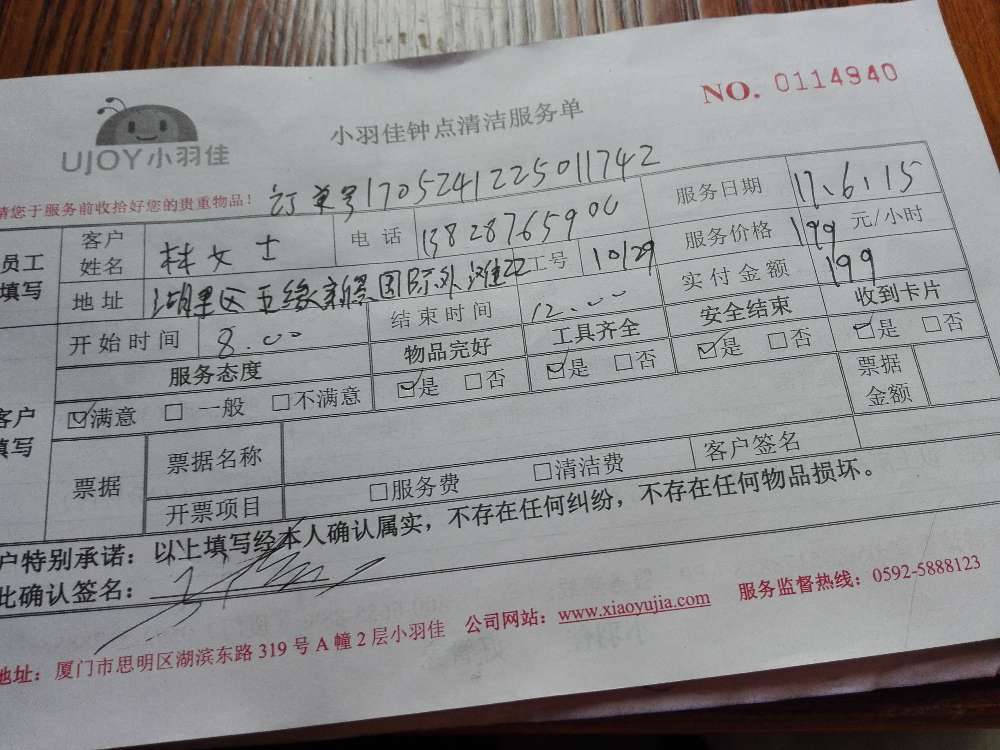 NO. 0114940
UJOY小羽佳
小羽佳钟点清洁服务单
请您于服务前收拾好您的贵重物品!
订单号1705241225011742
员工填写
客户姓名 林女士 电话 13828765900 服务日期 17.6.15
地址 湖里区五缘新景国际外滩 工号 10129 服务价格 199 元/小时
实付金额 199
客户填写
开始时间 8.00 结束时间 12.00
服务态度 物品完好 工具齐全 安全结束 收到卡片
☑满意 □一般 □不满意 ☑是 □否 ☑是 □否 ☑是 □否 ☑是 □否
票据 票据名称 票据金额
开票项目 □服务费 □清洁费 客户签名
户特别承诺：以上填写经本人确认属实，不存在任何纠纷，不存在任何物品损坏。
此确认签名：
地址：厦门市思明区湖滨东路319号A幢2层小羽佳 公司网站：www.xiaoyujia.com 服务监督热线：0592-5888123